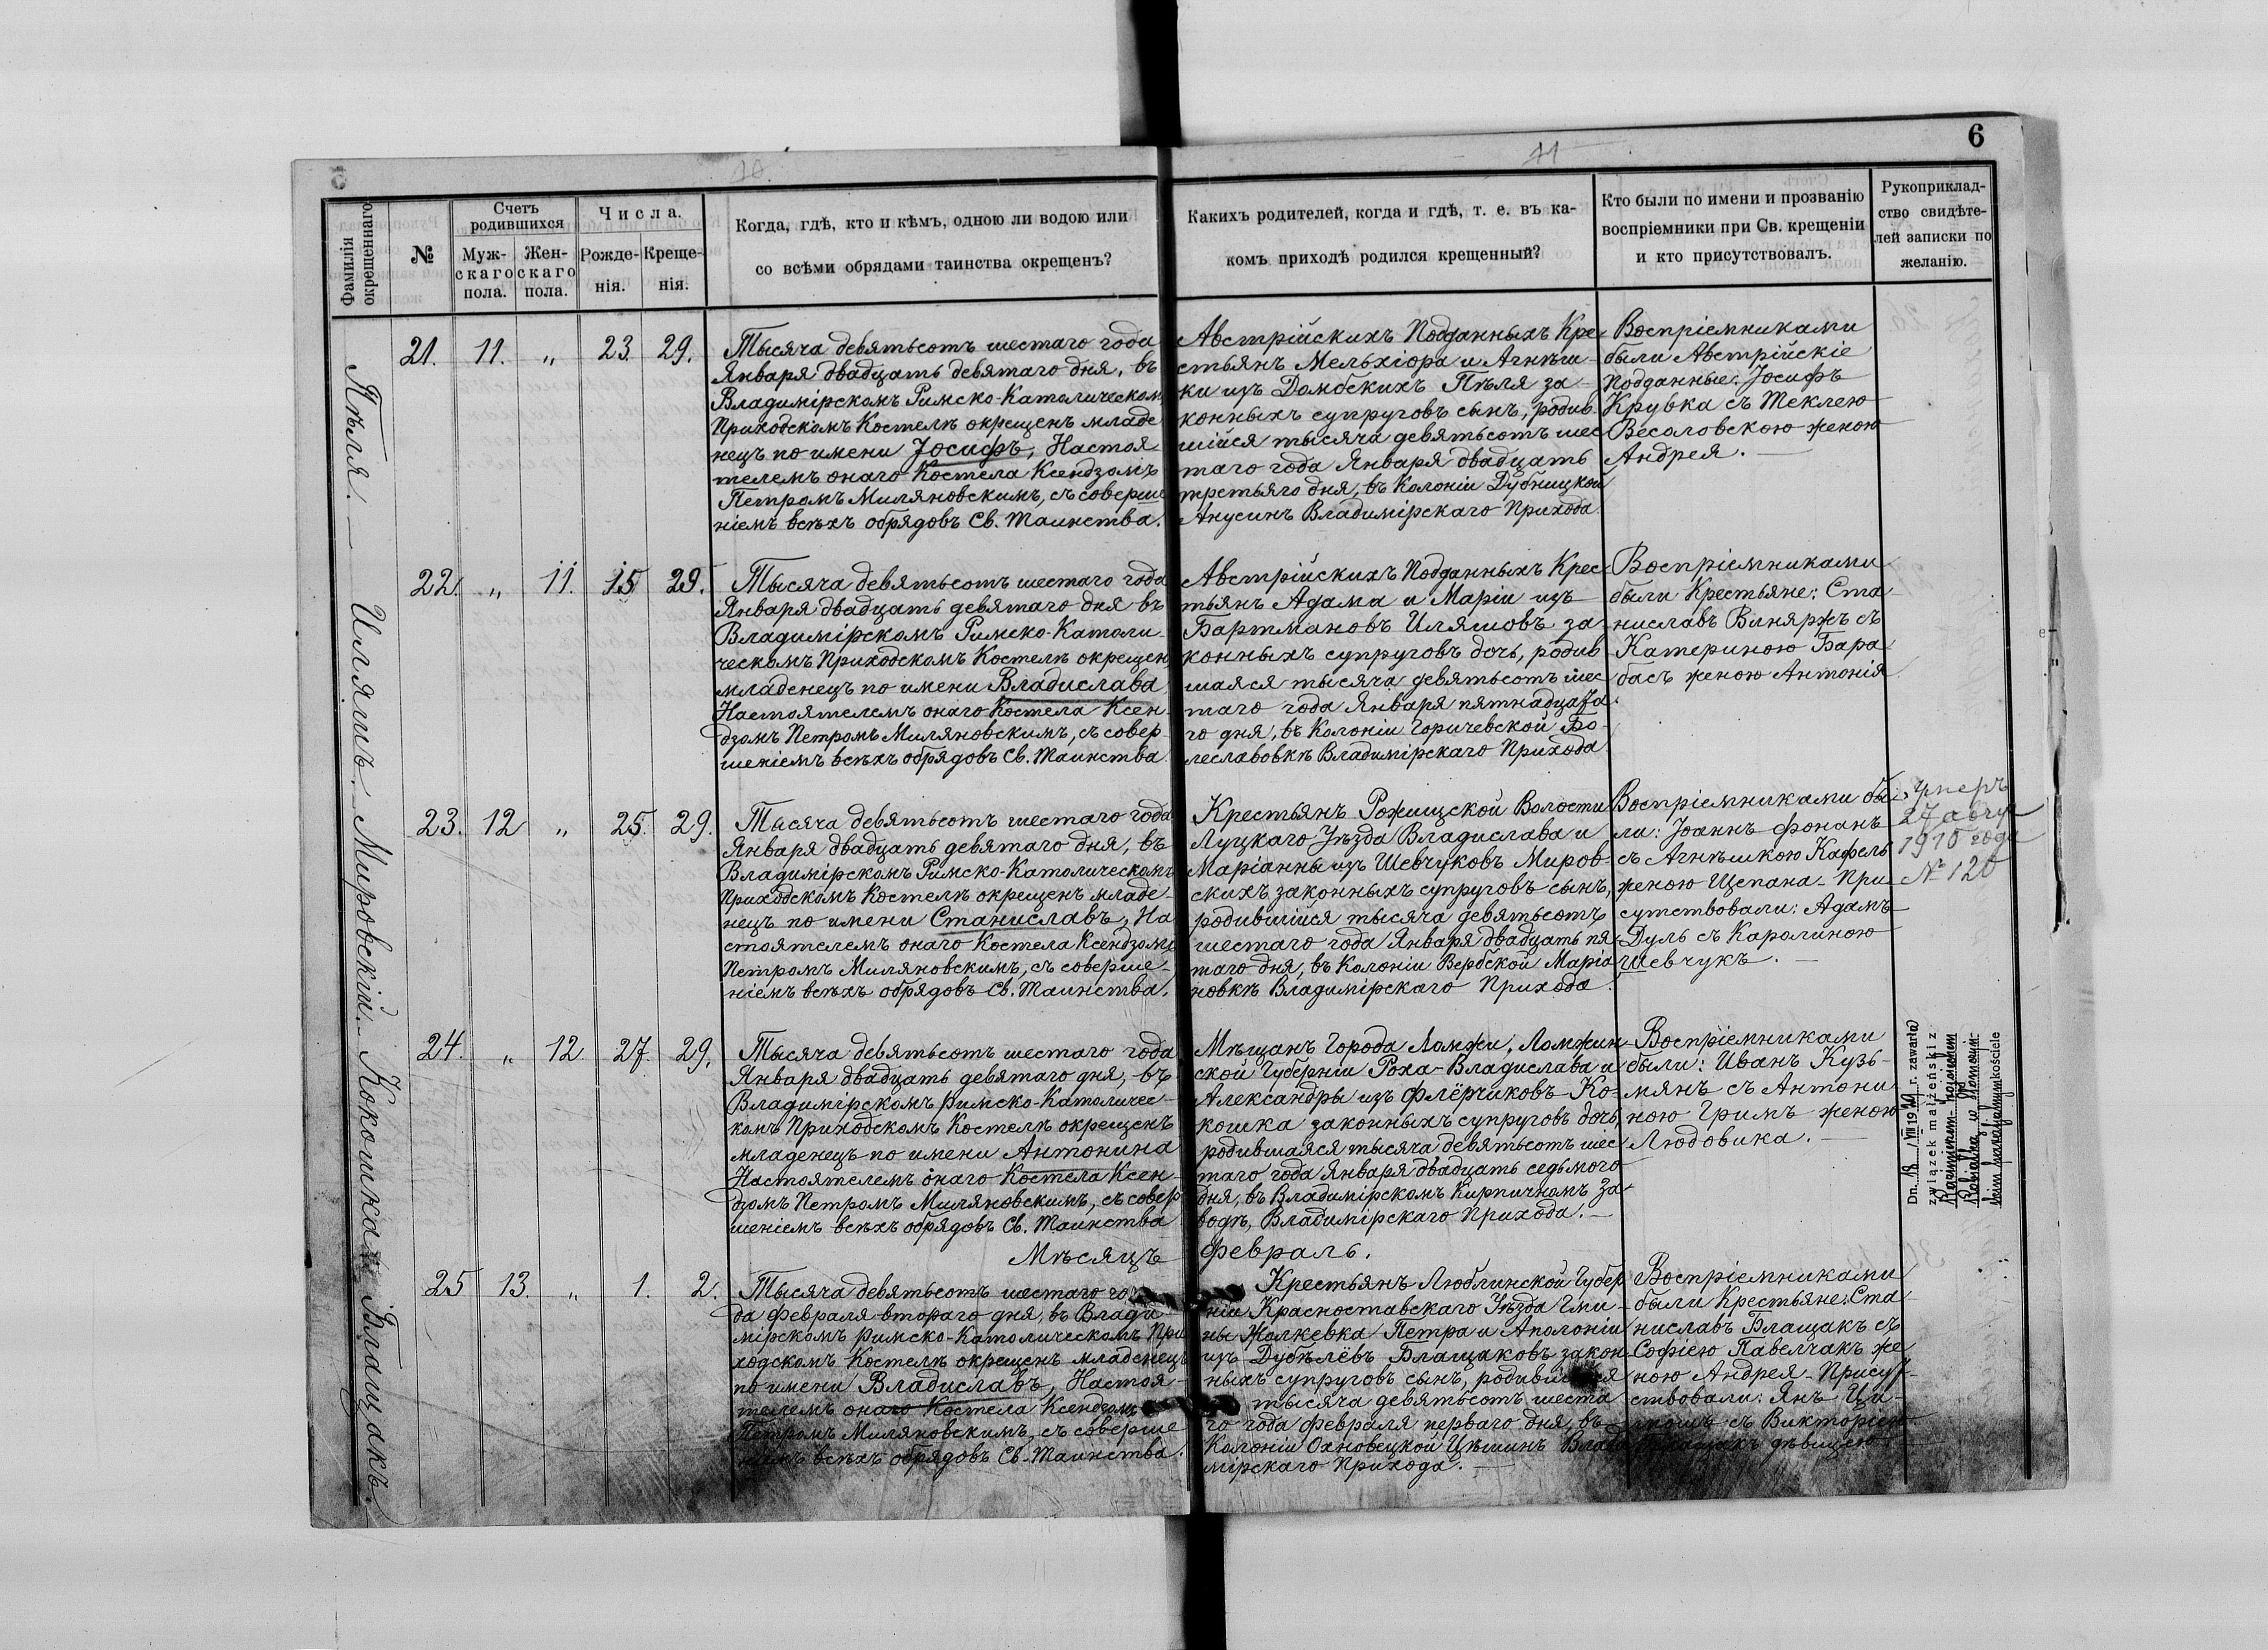 6
Фамилія
окрещеннаго
№
Счетъ
родившихся
Муж-
скаго
пола.
Жен-
скаго
пола.
Числа.
Рожде-
нія.
Креще-
нія.
Когда, гдѣ, кто и кѣмъ, одною ли водою или
со всѣми обрядами таинства окрещенъ?
Какихъ родителей, когда и гдѣ, т. е. въ ка-
комъ приходѣ родился крещенный?
Кто были по имени и прозванію
воспріемники при Св. крещеніи
и кто присутствовалъ.
Рукоприклад-
ство свидѣте-
лей записки по
желанію.
Пѣля.
21. 11. „ 23. 29.
Тысяча девятьсотъ шестаго года
Января двадцать девятаго дня, въ
Владимірскомъ Римско-Католическомъ
Приходскомъ Костелѣ окрещенъ младе
нецъ по имени Іосифъ, Настоя
телемъ онаго Костела Ксендзомъ
Петромъ Миляновскимъ, съ соверше
ніемъ всѣхъ обрядовъ Св. Таинства.
Австрійскихъ Подданныхъ Кре-
стьянъ Мельхіора и Агнѣш-
ки изъ Домбскихъ Пѣля за-
конныхъ супруговъ сынъ, родив-
шійся тысяча девятьсотъ шес
таго года Января двадцать
третьяго дня, въ Колоніи Дубницкой
Анусинъ Владимірскаго Прихода
Воспріемниками
были Австрійскіе
подданные: Іосифъ
Крувка съ Теклею
Весоловскою женою
Андрея.
Иляшъ.
22. „ 11. 15 29.
Тысяча девятьсотъ шестаго года
Января двадцать девятаго дня въ
Владимірскомъ Римско-Католи-
ческомъ Приходскомъ Костелѣ окрещен
младенецъ по имени Владислава
Настоятелемъ онаго Костела Ксен-
дзомъ Петромъ Миляновскимъ, съ совер-
шеніемъ всѣхъ обрядовъ Св. Таинства
Австрійскихъ Подданныхъ Крес-
тьянъ Адама и Маріи изъ
Бартмановъ Иляшовъ за-
конныхъ супруговъ дочь, родив
шаяся тысяча девятьсотъ шес
таго года Января пятнадцата
го дня, въ Колоніи Горичевской Бо-
леславовкѣ Владимірскаго Прихода
Воспріемниками
были Крестьяне: Ста
ниславъ Виняржъ съ
Катериною Бара
басъ женою Антонія.
Мировскій.
23. 12 „ 25. 29.
Тысяча девятьсотъ шестаго года
Января двадцать девятаго дня, въ
Владимірскомъ Римско-Католическомъ
Приходскомъ Костелѣ окрещенъ младе-
нецъ по имени Станиславъ, На
стоятелемъ онаго Костела Ксендзомъ
Петромъ Миляновскимъ, съ соверше-
ніемъ всѣхъ обрядовъ Св. Таинства.
Крестьянъ Рожищской Волости
Луцкаго Уѣзда Владислава и
Маріанны изъ Шевчуковъ Миров-
скихъ законныхъ супруговъ сынъ,
родившійся тысяча девятьсотъ
шестаго года Января двадцать пя-
таго дня, въ Колоніи Вербской Маріа
новкѣ Владимірскаго Прихода.
Воспріемниками бы-
ли: Іоаннъ Фонанъ
съ Агнѣшкою Кафель
женою Щепана - При
сутствовали: Адамъ
Дуль съ Каролиною
Шевчукъ.
Умеръ
27
1910 года
№ 120
Кокошка.
24. „ 12 27. 29.
Тысяча девятьсотъ шестаго года
Января двадцать девятаго дня, въ
Владимірскомъ Римско-Католичес-
комъ Приходскомъ Костелѣ окрещенъ
младенецъ по имени Антонина
Настоятелемъ онаго Костела Ксен-
дзомъ Петромъ Миляновскимъ, съ совер
шеніемъ всѣхъ обрядовъ Св. Таинства
Мѣщанъ Города Ломжи, Ломжин-
ской Губерніи Роха-Владислава и
Александры изъ Флёрчиковъ Ко-
кошка законныхъ супруговъ дочь,
родившаяся тысяча девятьсотъ шес
таго года Января двадцать седьмого
дня, въ Владимірскомъ Кирпичномъ За-
водѣ, Владимірскаго Прихода.
Воспріемниками
были: Иванъ Кузь-
мянъ съ Антони-
ною Гримъ женою
Людовика.
Dn. 18/VIII 19 r. zawarła
związek małżeński z
kościele
Мѣсяцъ Февраль.
Блащакъ.
25 13. „ 1. 2.
Тысяча девятьсотъ шестаго го-
да Февраля втораго дня, въ Влади-
мірскомъ Римско-Католическомъ При
ходскомъ Костелѣ окрещенъ младенецъ
по имени Владиславъ, Настоя-
телемъ онаго Костела Ксендзомъ
Петромъ Миляновскимъ, съ соверше
ніемъ всѣхъ обрядовъ Св. Таинства.
Крестьянъ Люблинской Губер
ніи Красноставскаго Уѣзда Гми-
ны Жолкевка Петра и Аполоніи
изъ Дубѣлёвъ Блащаковъ закон-
ныхъ супруговъ сынъ, родившійся
тысяча девятьсотъ шеста
го года Февраля перваго дня, въ
Колоніи Охновецкой Цѣшинъ Влади
мірскаго Прихода.
Воспріемниками
были Крестьяне: Ста
ниславъ Блащакъ съ
Софіею Павелчакъ же
ною Андрея - Присут-
ствовали: Янъ
съ Викторіею
Блащакъ дѣвицею.